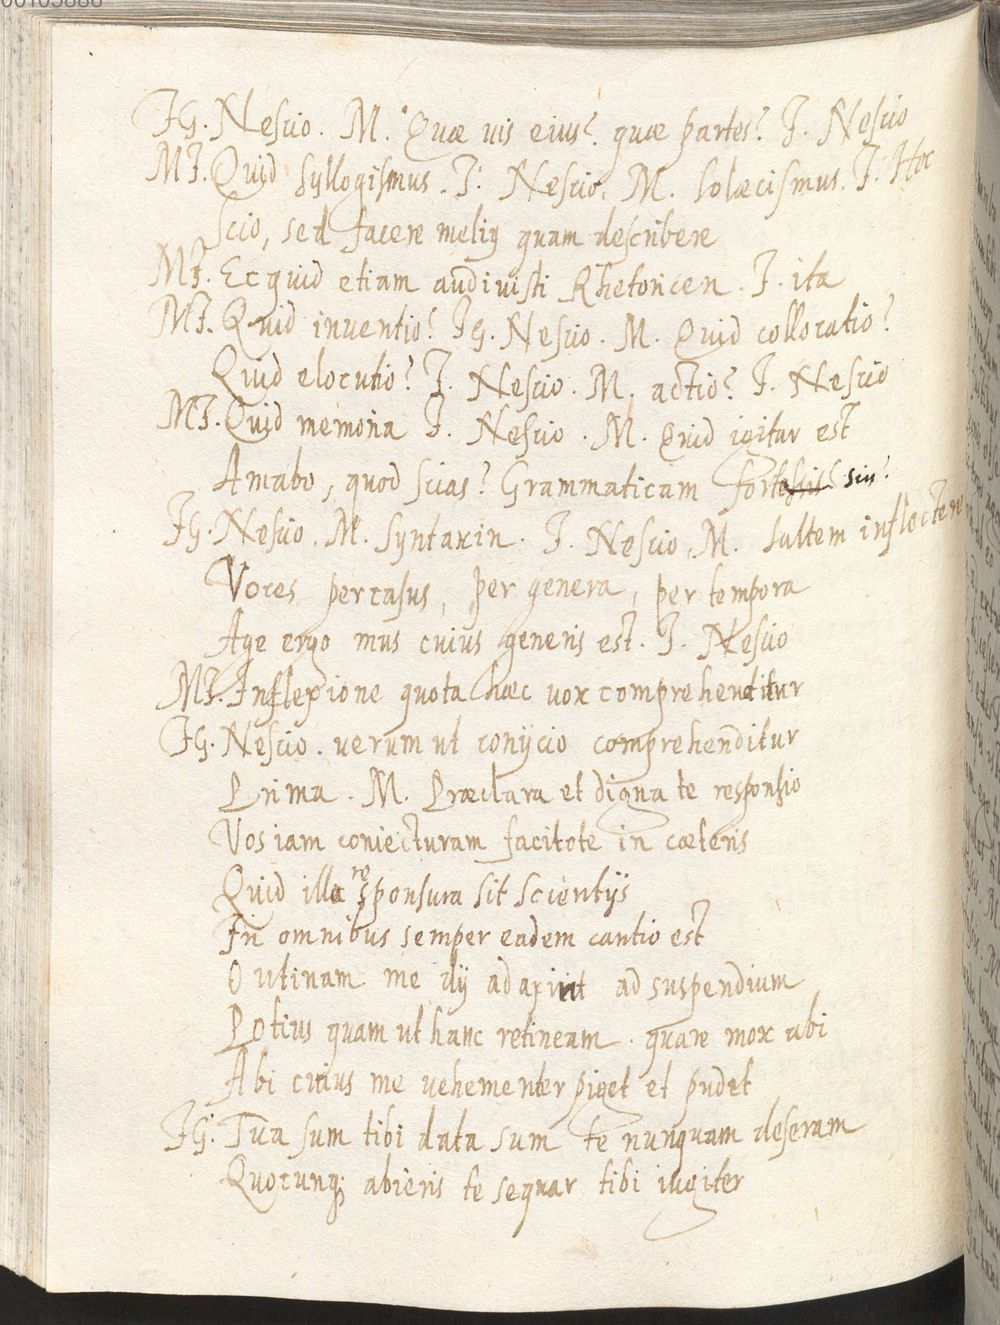 IG. Nescio. M. Quæ vis eius? quæ partes? I. Nescio
MI. Quid syllogismus. I. Nescio. M. solæcismus. I. Hoc
scio, sed facere melius quam describere
MI. Ecquid etiam audivisti Rhetoricen. I. ita
MI. Quid inventio? IG. Nescio. M. Quid collocatio?
Quid elocutio? I. Nescio. M. actio? I. Nescio
MI. Quid memoria I. Nescio. M. Quid igitur est
Amabo, quod scias? Grammaticam
IG. Nescio. M. syntaxin. I. Nescio. M. saltem inflectere
Voces per casus, per genera, per tempora
Age ergo mus cuius generis est. I. Nescio
MI. Inflexione quota hæc vox comprehenditur
IG. Nescio. verum ut conijcio comprehenditur
Prima. M. Præclara et digna te responsio
Vos iam coniecturam facitote in cæteris
Quid illa responsura sit scientijs
In omnibus semper eadem cantio est
O utinam me dij adaxint ad suspendium
Potius quam ut hanc retineam. quare mox abi
Abi citius me vehementer piget et pudet
IG. Tua sum tibi data sum te nunquam deseram
Quocunq; abieris te sequar tibi iugiter